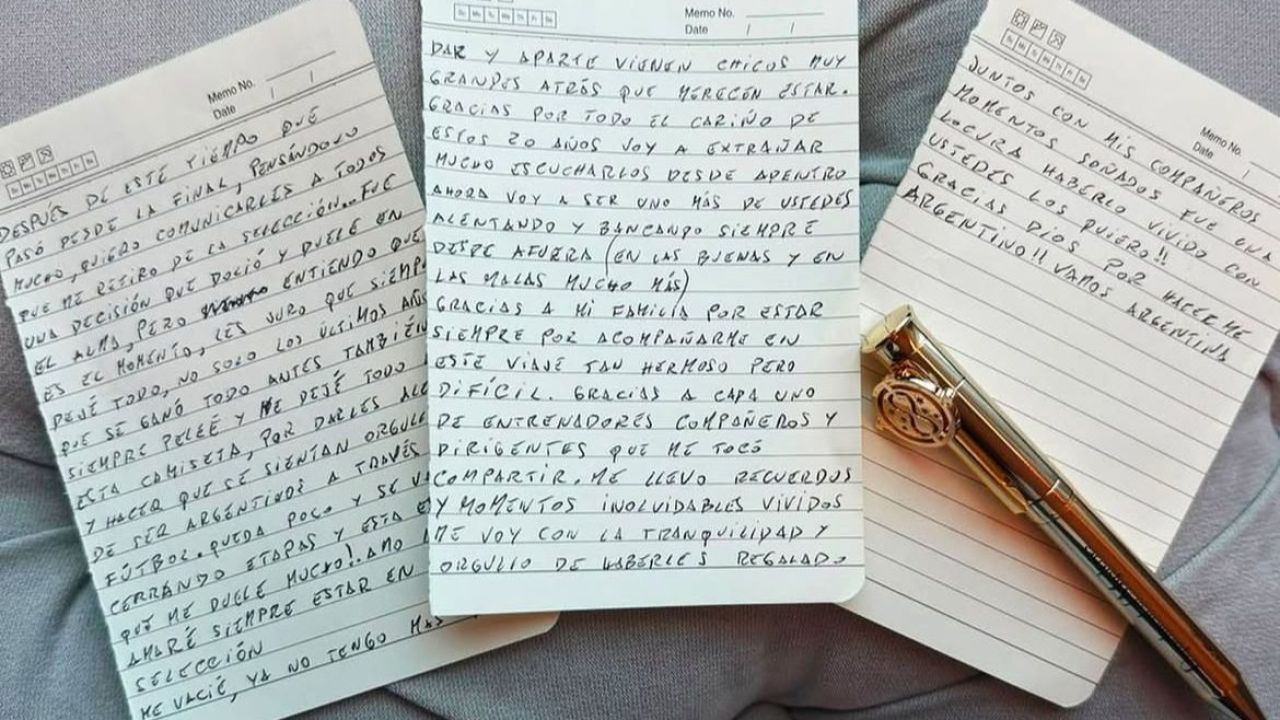 Memo No.
Date / /
DESPUÉS DE ESTE TIEMPO QUE
PASÓ DESDE LA FINAL, PENSÁNDOLO
MUCHO, QUIERO COMUNICARLES A TODOS
QUE ME RETIRO DE LA SELECCIÓN. FUE
UNA DECISIÓN QUE DOLIÓ Y DUELE EN
EL ALMA, PERO ENTIENDO QUE
ES EL MOMENTO, LES JURO QUE SIEMP
DEJÉ TODO, NO SOLO LOS ÚLTIMOS AÑOS
QUE SE GANÓ TODO ANTES TAMBIÉN
SIEMPRE PELEÉ Y ME DEJÉ TODO
ESTA CAMISETA, POR DARLES ALE
Y HACER QUE SE SIENTAN ORGULL
DE SER ARGENTINOS A TRAVÉS
FÚTBOL. QUEDA POCO Y SE VA
CERRANDO ETAPAS Y ESTA E
QUE ME DUELE MUCHO!! AMO
AMARÉ SIEMPRE ESTAR EN
SELECCIÓN
ME VACIÉ, YA NO TENGO MAS
Memo No.
Date / /
DAR Y APARTE VIENEN CHICOS MUY
GRANDES ATRÁS QUE MERECEN ESTAR.
GRACIAS POR TODO EL CARIÑO DE
ESTOS 20 AÑOS VOY A EXTRAÑAR
MUCHO ESCUCHARLOS DESDE ADENTRO
AHORA VOY A SER UNO MÁS DE USTEDES
ALENTANDO Y BANCANDO SIEMPRE
DESDE AFUERA (EN LAS BUENAS Y EN
LAS MALAS MUCHO MÁS)
GRACIAS A MI FAMILIA POR ESTAR
SIEMPRE POR ACOMPAÑARME EN
ESTE VIAJE TAN HERMOSO PERO
DIFÍCIL. GRACIAS A CADA UNO
DE ENTRENADORES COMPAÑEROS Y
DIRIGENTES QUE ME TOCÓ
COMPARTIR. ME LLEVO RECUERDOS
Y MOMENTOS INOLVIDABLES VIVIDOS
ME VOY CON LA TRANQUILIDAD Y
ORGULLO DE HABERLES REGALADO
Memo No.
Date /
JUNTOS CON MIS COMPAÑEROS
MOMENTOS SOÑADOS FUE UNA
LOCURA HABERLO VIVIDO CON
USTEDES LOS QUIERO!!
GRACIAS DIOS POR HACERME
ARGENTINO!! VAMOS ARGENTINA